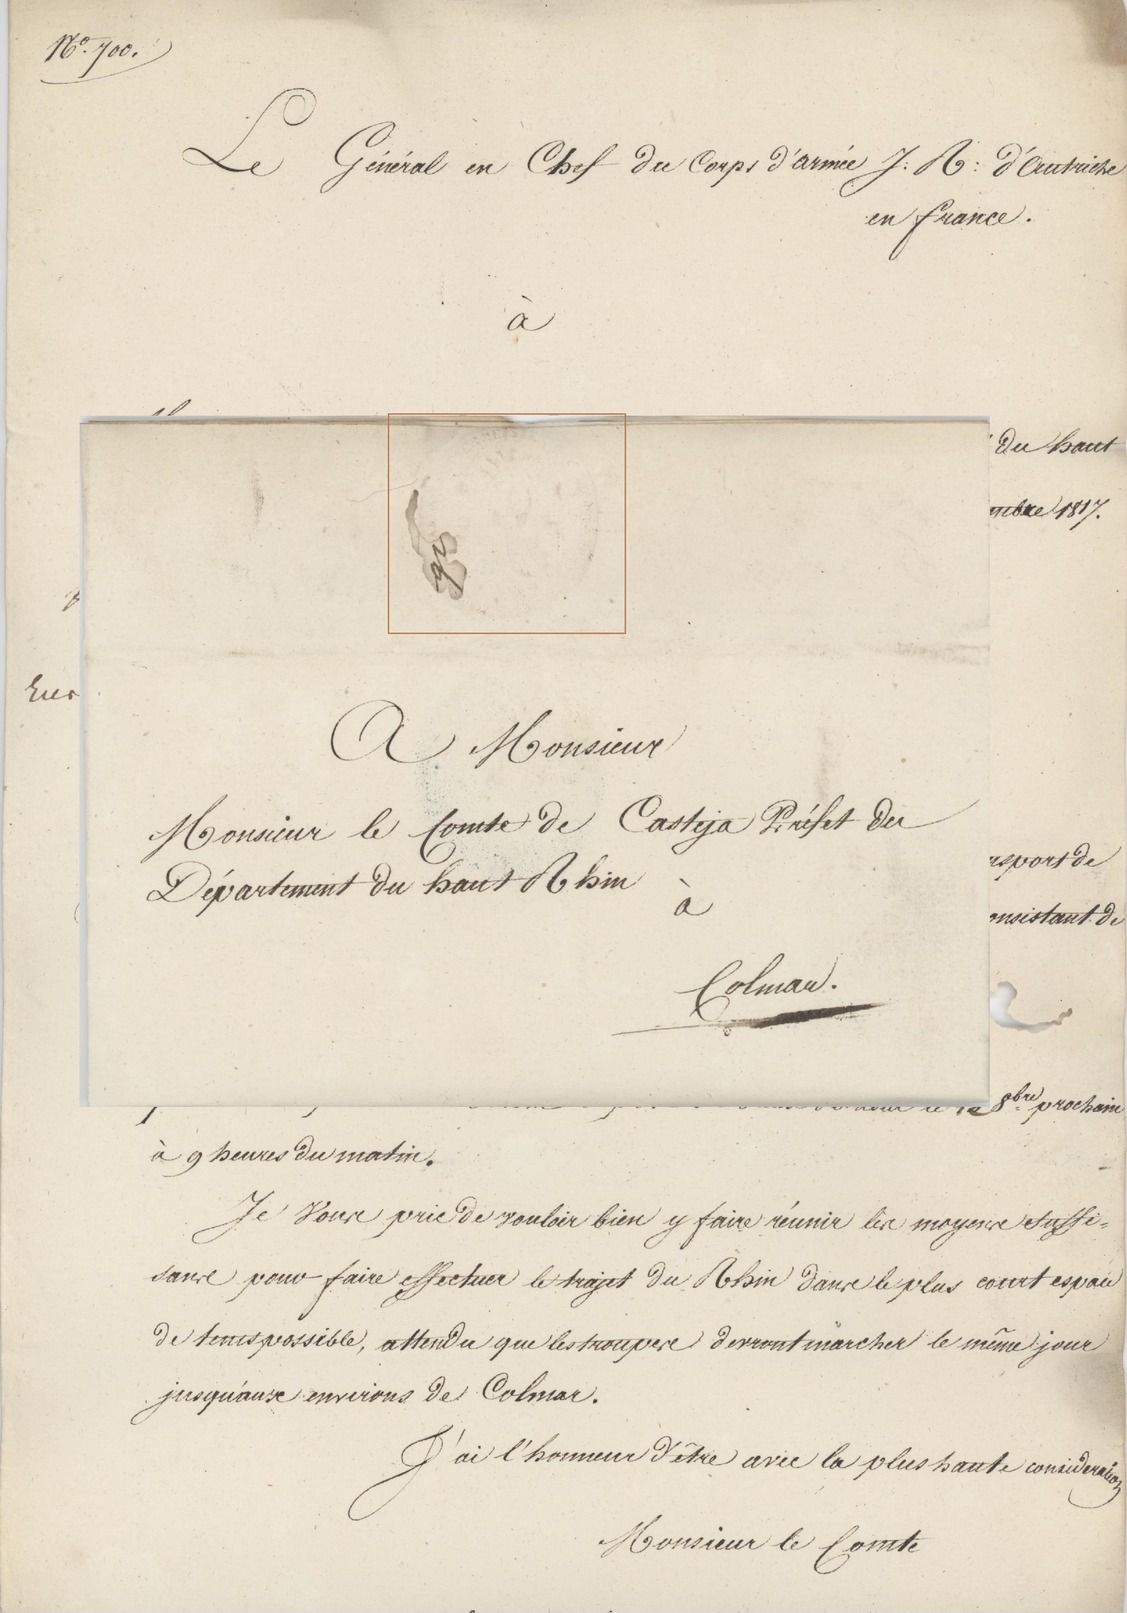 No. 700.
Le Général en Chef du Corps d'armée J: R: d'Autriche
en france.
à
du haut
mbre 1817.
A Monsieur
Monsieur le Comte de Casteja Préfet du
Département du haut Rhin
à
Colmar.
nsport de
onsistant de
8bre prochain
à 9 heures du matin.
Je Vous prie de vouloir bien y faire réunir les moyens suffi=
sans pour faire effectuer le trajet du Rhin dans le plus court espace
de tems possible, attendu que les troupes devront marcher le même jour
jusqu'aux environs de Colmar.
J'ai l'honneur d'être avec la plus haute considération
Monsieur le Comte